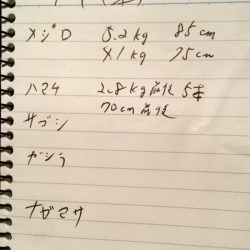 メジロ 5.2kg 85cm
4.1kg 75cm
ハマチ 2.8kg前後 5本
70cm前後
サゴシ
ガシラ
ナガマサ